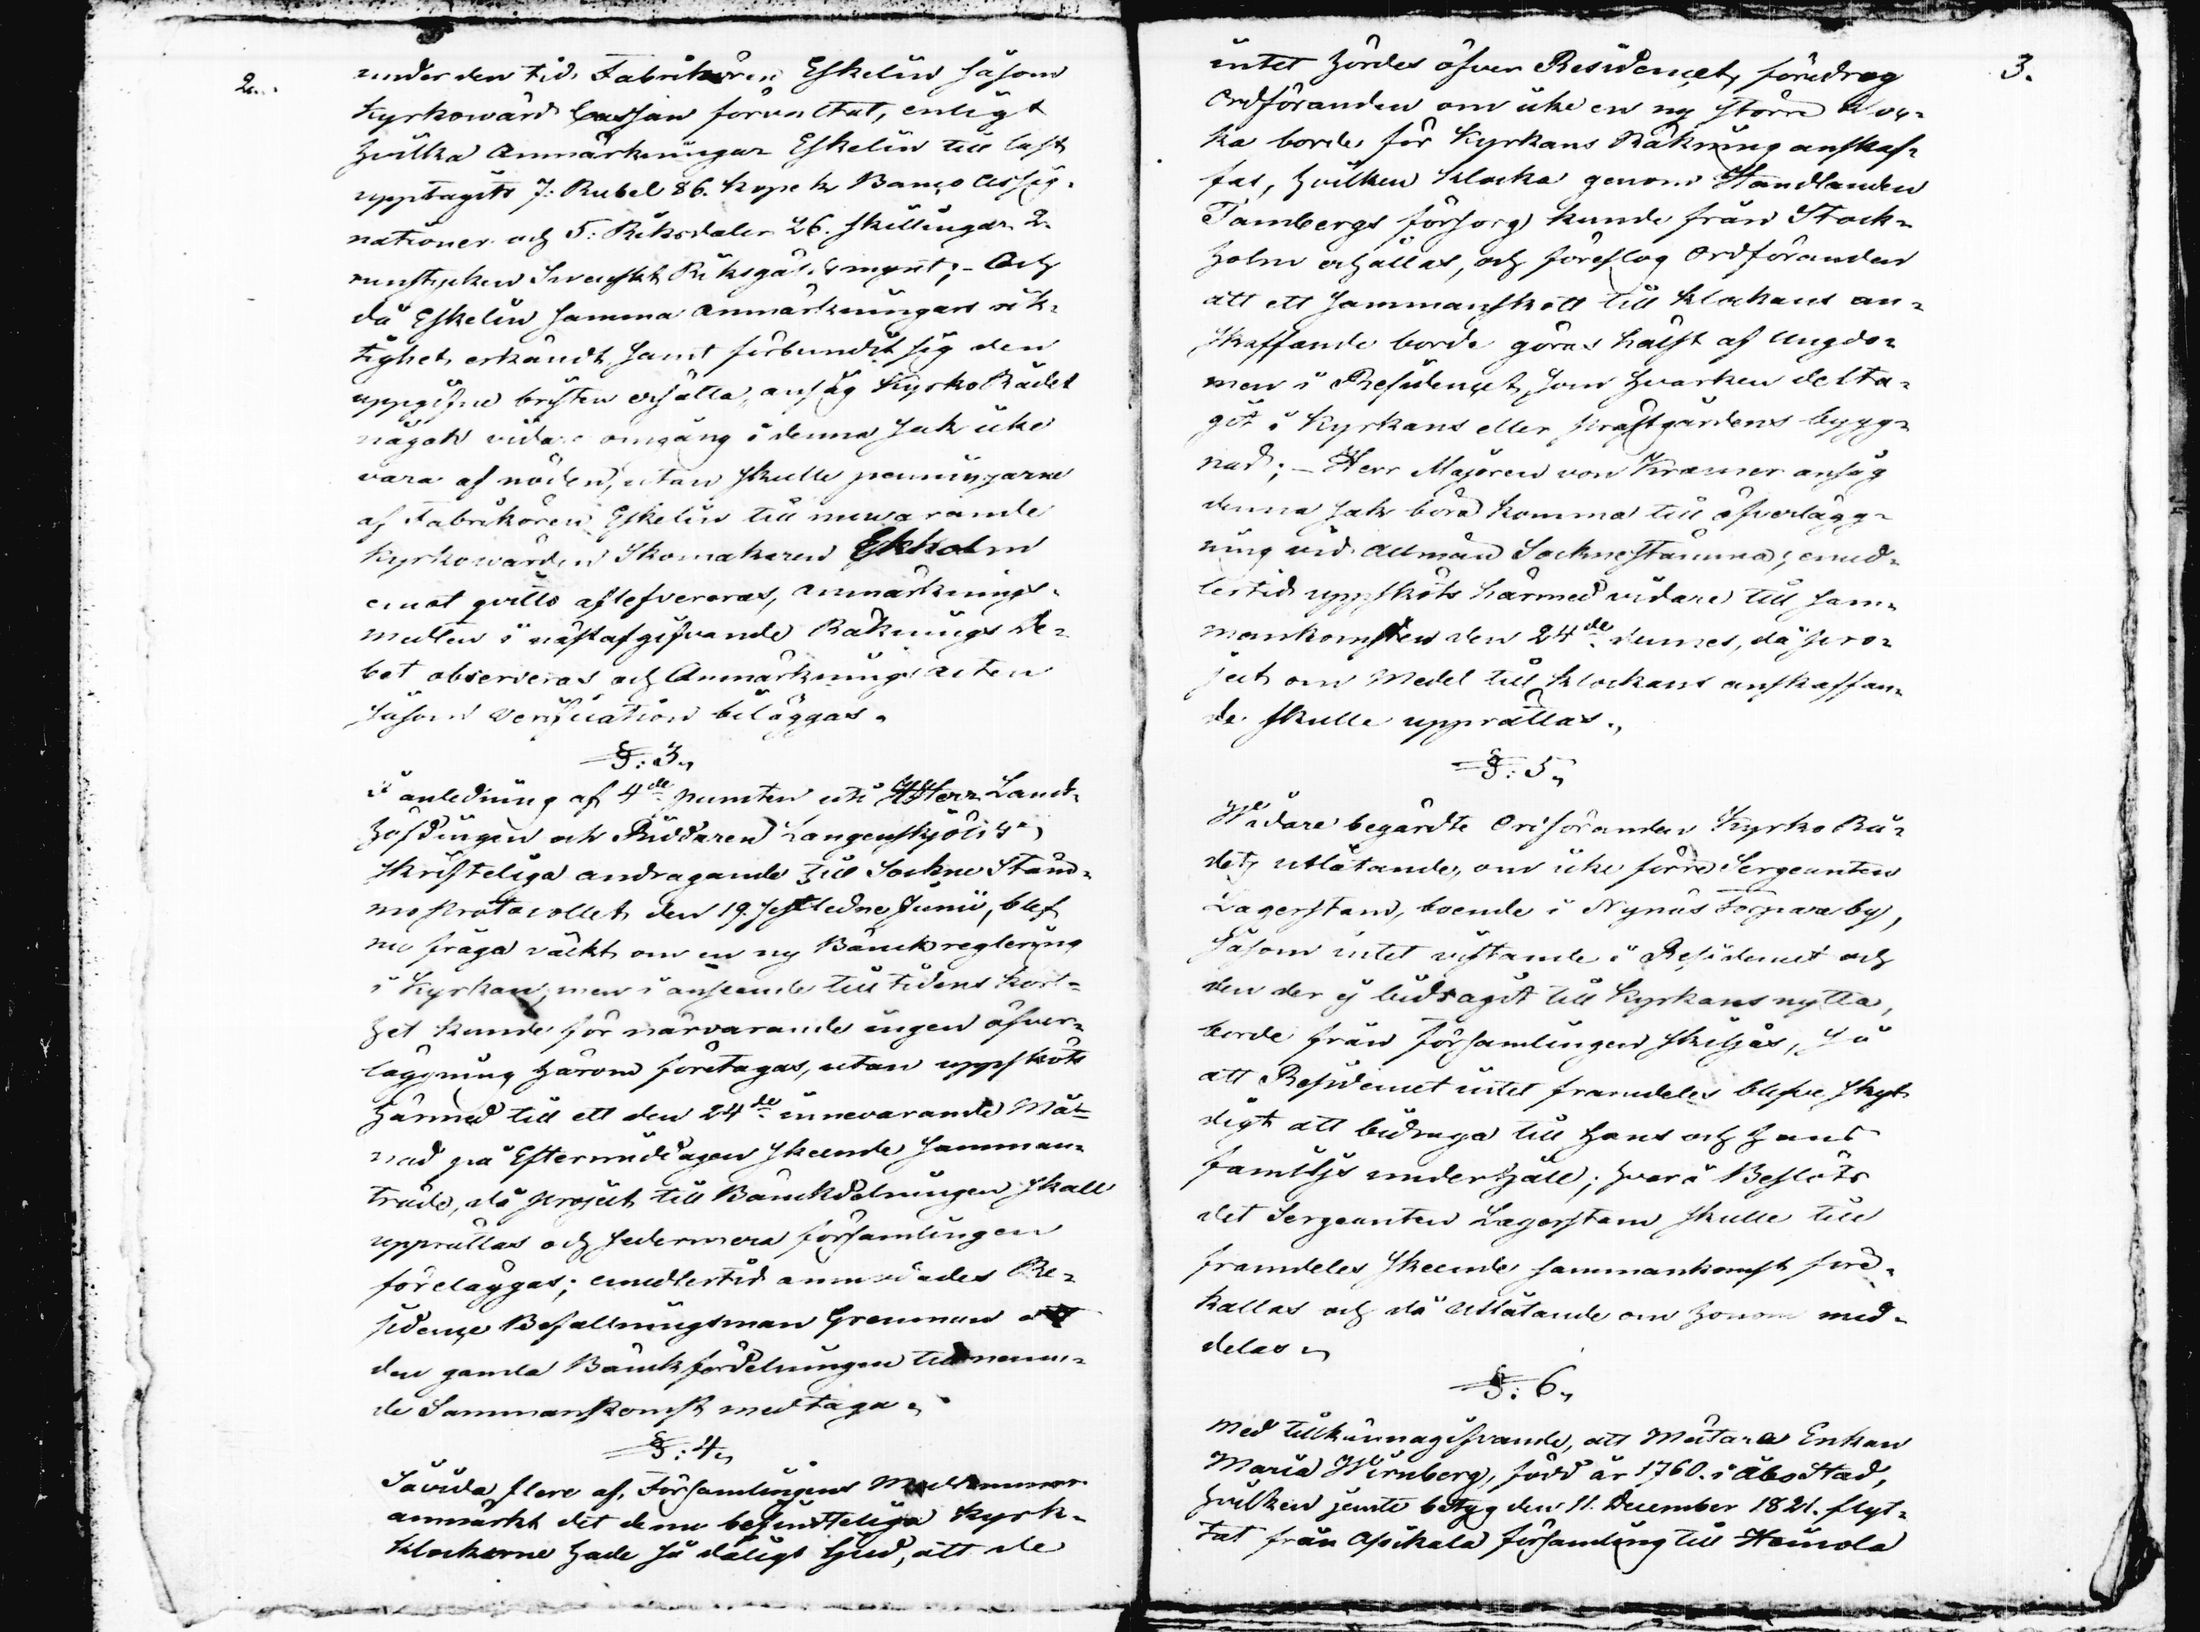 2.
under den tid Fabrikören Eskelin såsom
Kyrkowärd Cassan förvaltat, enligt
hvilka Anmärkningar Eskelin till last
upptagits 7: Rubel 86. kopek Banco Assig-
nationer och 5: Riksdaler 26. skillingar 2.
runstycken Svenskt Riksgälds mynt; – Och
då Eskelin samma anmärkningars rik-
tighet erkändt samt förbundit sig den
uppgifne bristen ersätta, ansåg KyrkoRådet
någon vidare omgång i denna sak icke
vara af nöden, utan skulle penningarne
af Fabrikören Eskelin till nuwarande
Kyrkowärden Skomakaren Ekholm
emot qvitto aflefvereras, anmärknings-
medlen i näst afgifvande Räknings De-
bet observeras och Anmärknings acten
såsom Verification biläggas.
§: 3.
I anledning af 4de puncten uti Herr Lands-
höfdingen och Riddaren Langenskjölds
skrifteliga andragande till Sockne Stäm-
mo Protocollet den 19. sistledne Junii, blef
nu fråga väckt om en ny Bänckreglering
i Kyrkan, men i anseende till tidens kort-
het kunde för närvarande ingen öfver-
läggning härom företagas, utan uppsköts
härmed till ett den 24de innevarande Må-
nad på Eftermiddagen skeende samman-
träde, då project till Bänckdelningen skall
upprättas och sedermera församlingen
föreläggas; emedlertid anmodades Re-
sidence Befallningsman Grenman att
den gamla Bänckfördelningen till nemn-
de Sammankomst medtaga.
§: 4.
Såvida flere af Församlingens Medlemmar
anmärkt det denna befindteliga Kyrk-
klockorne hade så dåligt ljud, att de
3.
intet hördes öfver Residencet, föredrog
Ordföranden om icke en ny större Kloc-
ka borde för Kyrkans Räkning anskaf-
fas, hvilken klocka genom Handlanden
Tambergs försorg kunde från Stock-
holm erhållas, och föreslog Ordföranden
att ett sammanskott till klockans an-
skaffande borde göras hälst af Ungdo-
men i Residencet, som hvarken delta-
git i Kyrkans eller prästgårdens bygg-
nad; – Herr Majoren von Kræmer ansåg
denna sak böra komma till öfverlägg-
ning vid Allmän Sockne stämma; emed-
lertid uppsköts härmed vidare till sam-
mankomsten den 24de dennes, då pro-
ject om Medel till klockans anskaffan-
de skulle upprättas.
§: 5.
Widare begärdte Ordföranden Kyrko Rå-
dets utlåtande, om icke förre Sergeanten
Lagerstam, boende i Nynäs Torpare by,
såsom intet vistande i Residencet och
den der ej bidragit till Kyrkans nytta,
borde från församlingen skiljas, så
att Residencet intet framdeles blefve skyl-
digt att bidraga till hans och hans
familjs underhåll; hvarå Beslöts
det Sergeanten Lagerstam skulle till
framdeles skeende sammankomst före-
kallas och då utlåtande om honom med-
delas.
§: 6.
Med tillkännagifvande, att Mätare Enkan
Maria Wirnberg, född år 1760. i Åbo Stad,
hvilken jemte betyg den 11. December 1821. flyt-
tat från Asikala församling till Heinola